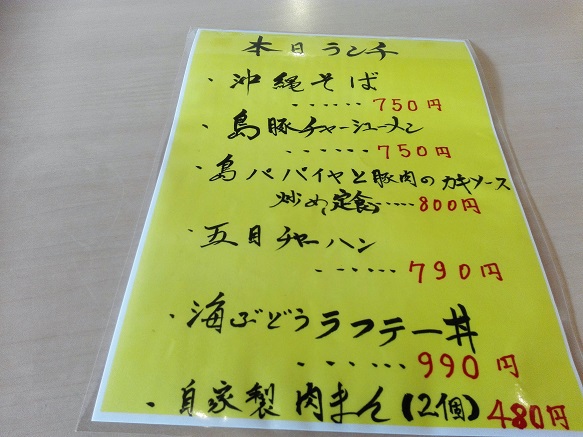 本日ランチ
・沖縄そば
・・・・・・750円
・島豚チャーシューメン
・・・・・・750円
・島パパイヤと豚肉のカキソース
炒め定食・・・・・800円
・五目チャーハン
・・・・・・790円
・海ぶどうラフテー丼
・・・・・・990円
・自家製肉まん(2個)480円